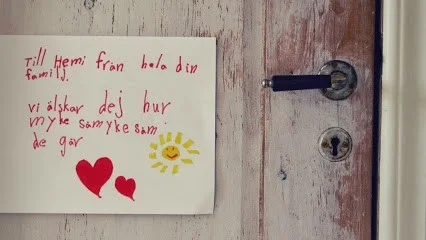 Till Hemi från hela din
familj.
vi älskar dej hur
myke samyke sam
de går